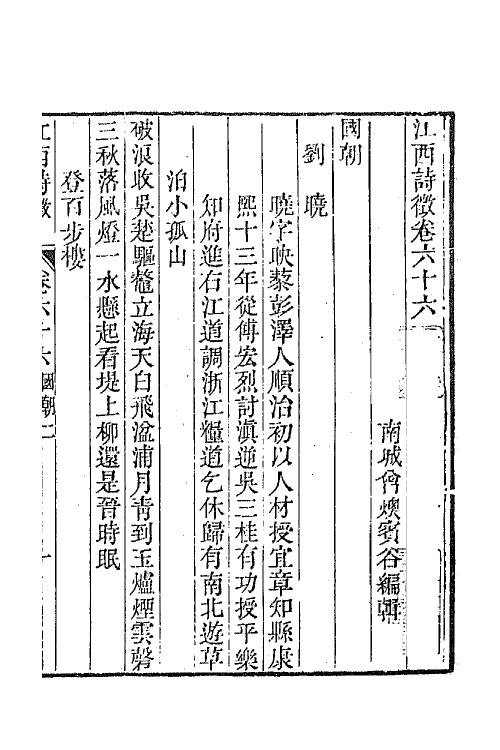 江西詩徵卷六十六
南城曾燠賓谷編輯
國朝
劉曉
曉字映藜彭澤人順治初以人材授宜章知縣康
熙十三年從傅宏烈討滇逆吳三桂有功授平樂
知府進右江道調浙江糧道乞休歸有南北遊草
泊小孤山
破浪收吳楚驅鼇立海天白飛湓浦月靑到玉爐煙雲磬
三秋落風燈一水懸起看堤上柳還是晉時眠
登百步樓
江西詩徵 卷六十六 國朝二 一